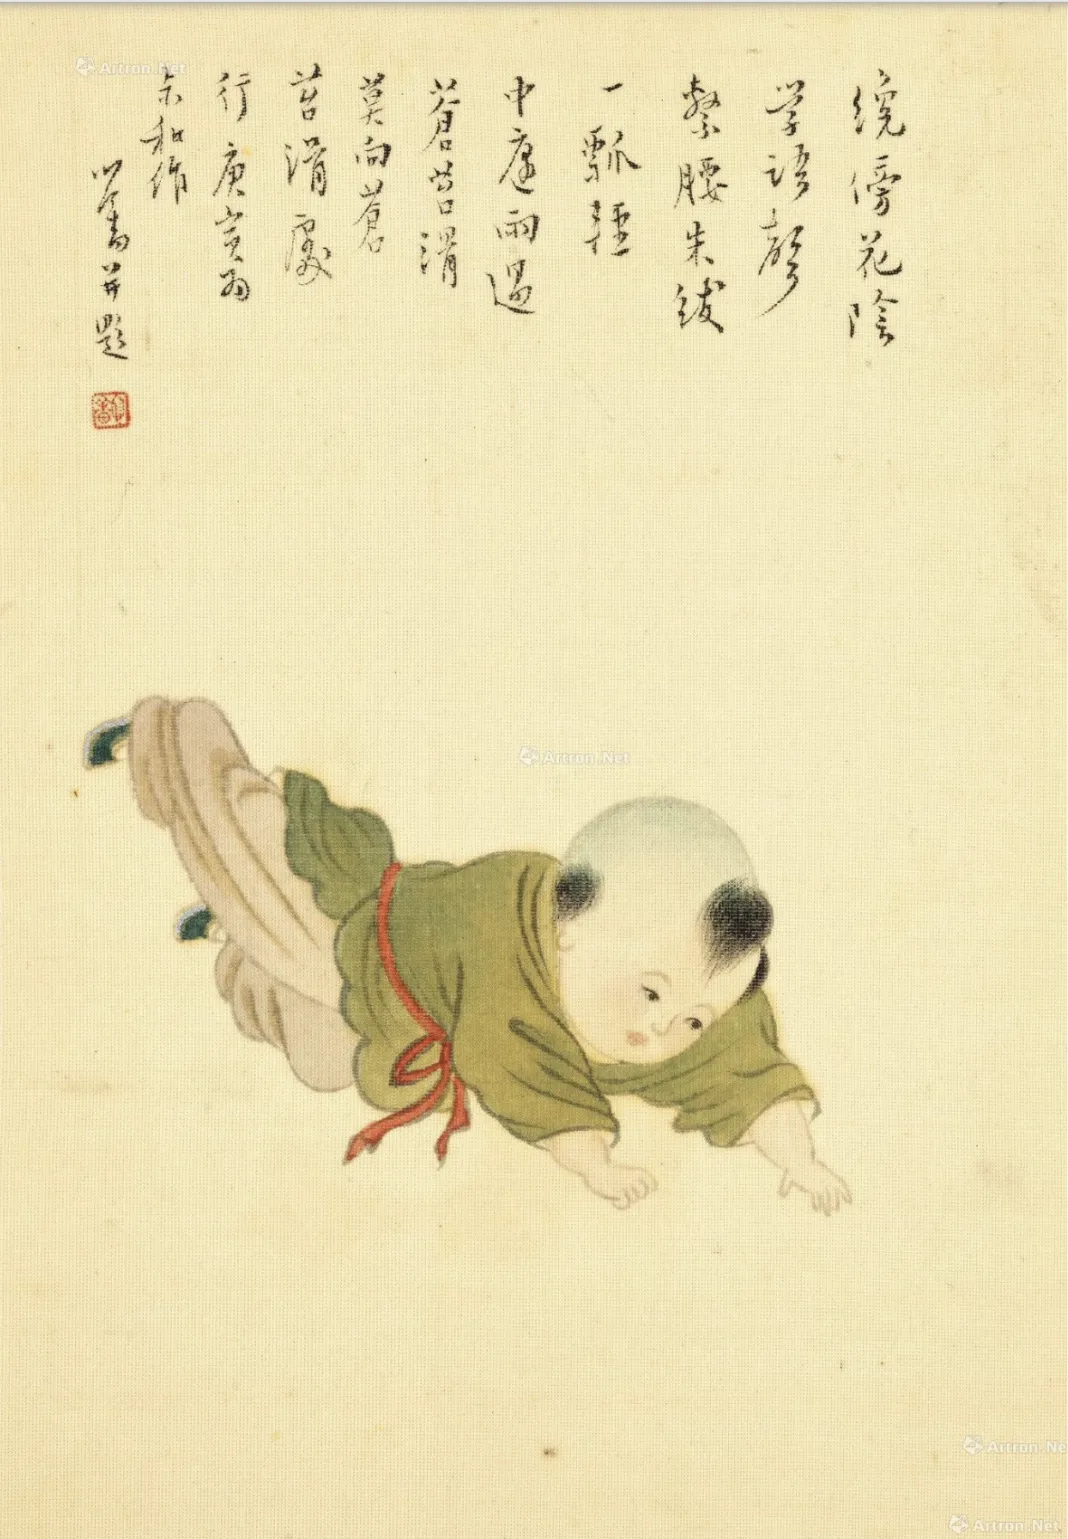 繞傍花陰
学語聲
繫腰朱紱
一瓢輕
中庭雨過
蒼苔滑
莫向蒼
苔滑處
行庚寅為
尗和作
心畬并題
Artron.Net
Artron.Net
Artron.Ne
Artron.Net